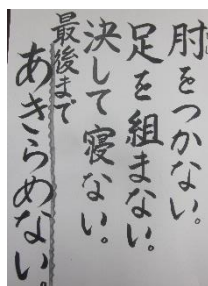 肘をつかない。
足を組まない。
決して寝ない。
最後まで
あきらめない。